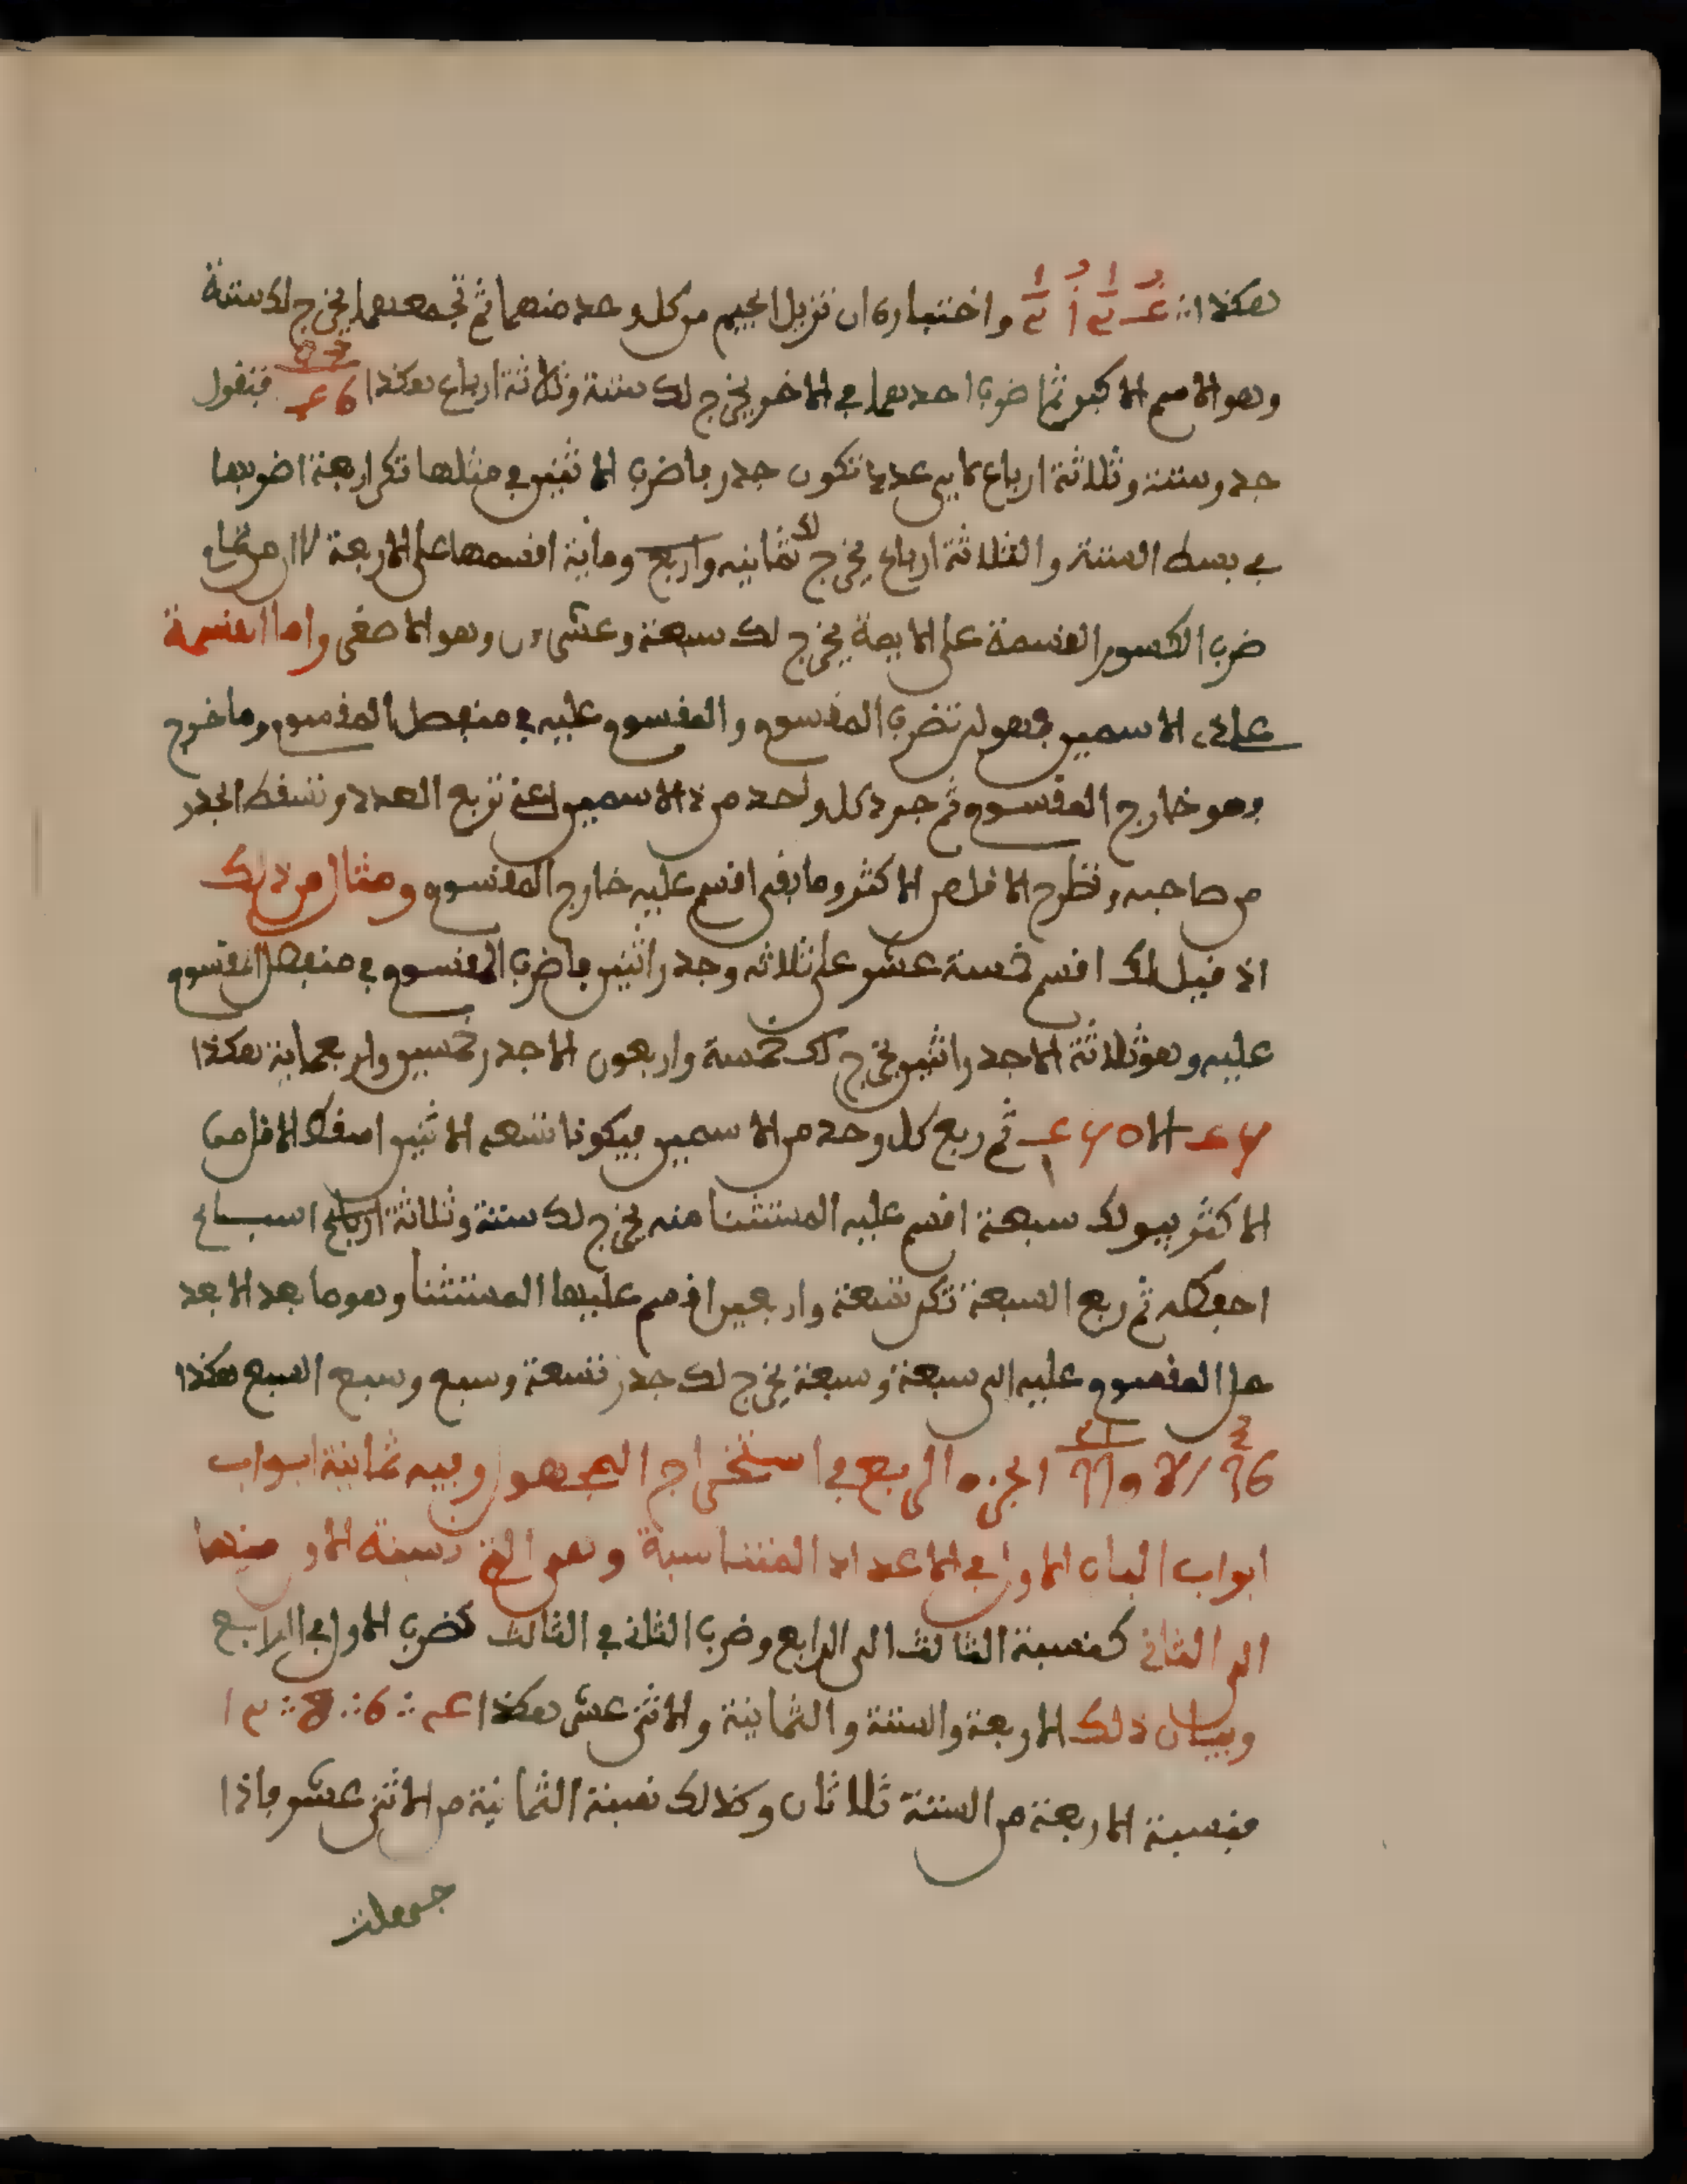 هكذا واختباره ان تزيل الجيم من كل وحد منهما ثم تجمعهما يخرج لك ستة
وهو الاسم الاكبر ثم اضرب احدهما في الاخر يخرج لك ستة وثلاثة ارباع هكذا فتقول
جدر وستة وثلاثة ارباع لاي عدد تكون جدر فاضرب الاثنين في مثلها تكن اربعة اضربها
في بسط الستة والثلاثة ارباع يخرج لك ثمانيه واربع وماية اقسمها على الاربعة
ضرب الكسور القسمة على الايمة يخرج لك سبعة وعشرون وهو الاصغر واما القسمة
على ذي الاسمين فهو ان تضرب المقسوم والمقسوم عليه في منفصل المقسوم وما خرج
فهو خارج المقسوم ثم جرد كل واحد من ذ الاسمين اعني تربع العدد وتسقط الجدر
من صاحبه وتطرح الاقل من الاكثر وما بقى اقسم عليه خارج المقسوم ومثال من ذلك
اذ قيل لك اقسم خمسة عشر على ثلاثه وجدر اثنين فاضرب المقسوم في منفصل المقسوم
عليه وهو ثلاثة الا جدر اثنين يخرج لك خمسة واربعون الا جدر خمسين واربعماية هكذا
ثم ربع كل وحد من الاسمين فيكونا تسعه الا ثنين اسقط الاقل من
الاكثر يبق لك سبعة اقسم عليه المستثنا منه يخرج لك ستة وثلاثة ارباع اسباع
احفظه ثم ربع السبعة تكن تسعة واربعين اقسم عليها المستثنا وهو ما بعد الا بعد
حل المقسوم عليه الى سبعة وسبعة يخرج لك جدر تسعة وسبع وسبع السبع هكذا
الجزء الربع في استخراج المجهول وفيه ثمانية ابواب
ابواب الباب الاول في الاعداد المتناسبة وهي التي نسبة الاول منها
الى الثاني كنسبة الثالث الى الرابع وضرب الثاني في الثالث كضرب الاول في الرابع
وبيان ذلك الاربعة والستة والثمانية والاثنى عشر هكذا
فنسبة الاربعة من الستة ثلاثان وكذلك نسبة الثمانية من الاثنى عشر فاذا
جعلت